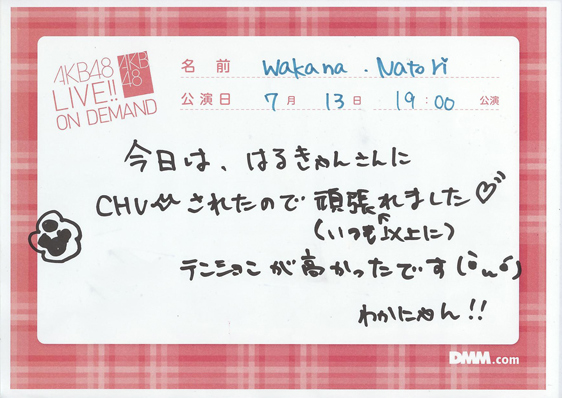 AKB48
LIVE!!
ON DEMAND
AKB
48
名 前 Wakana . Natori
公演日 7月 13日 19:00 公演
今日は、はるきゃんさんに
CHUされたので頑張れました♡
(いつも以上に)
テンションが高かったです( òωó)
わかにゃん!!
DMM.com